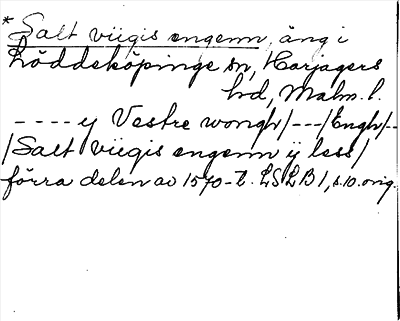 * Salt viigis engenn, äng i
Löddeköpinge sn, Harjagers
hd, Malm. l.
---- y Vestre wongh/---/Engh/--
/Salt viigis engenn ÿ less/
förra delen av 1570-t. LSLB 1, s. 10. orig.